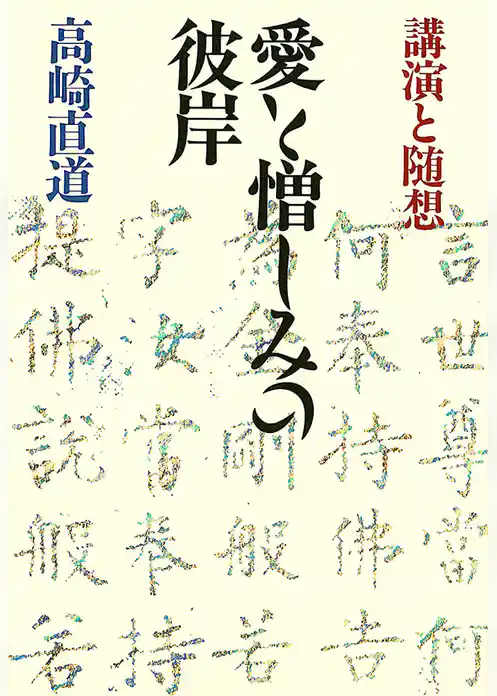 講演と随想
愛と憎しみの
彼岸
高崎直道
言世尊當何
何奉持佛告
金剛般若
字汝當奉持
提佛説般若